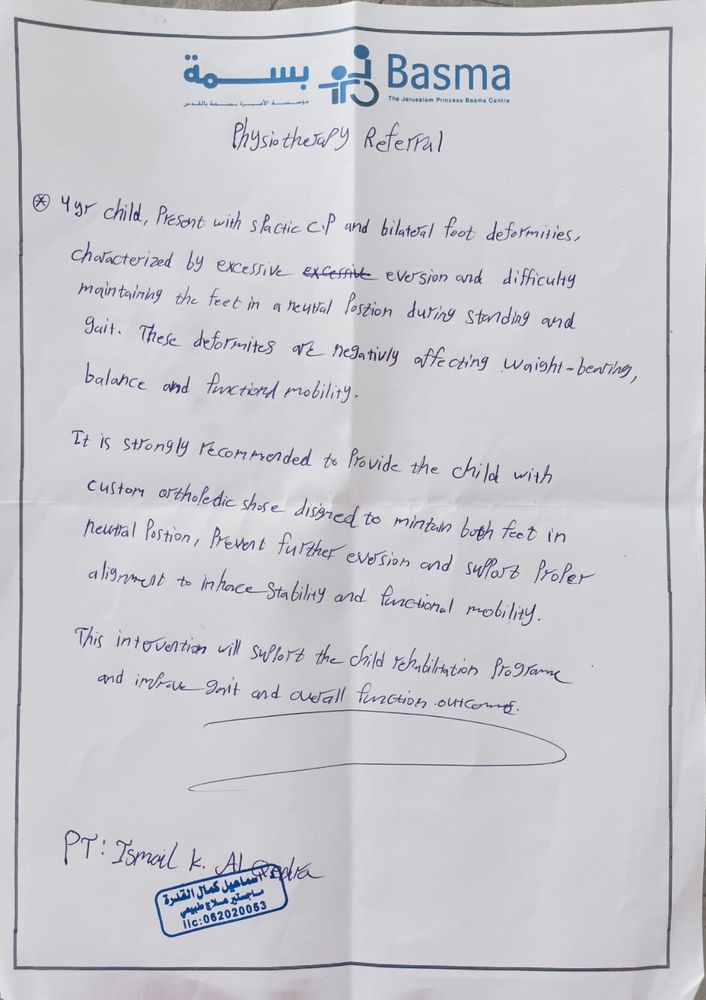 بسمة Basma
مؤسسة الأميرة بسمة بالقدس The Jerusalem Princess Basma Centre
Physiotherapy Referral
* 4yr child, Present with spactic C.P and bilateral foot deformities,
characterized by excessive excessive eversion and difficulty
maintaining the feet in a neutral Postion during standing and
gait. These deformites are negativly affecting waight-bearing,
balance and functional mobility.
It is strongly recommended to Provide the child with
custom orthopedic shose disigned to mintain both feet in
neutral Postion, Prevent further eversion and support Proper
alignment to inhace stability and functional mobility.
This intervention will support the child rehabilitation Programe
and improve gait and overall function outcomes.
PT: Ismail K. Al Qedra
اسماعيل كمال القدرة
ماجستير علاج طبيعي
lic:062020053